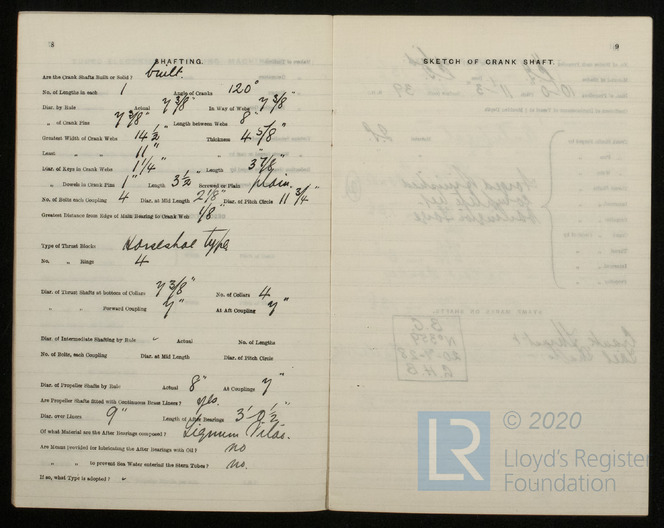 8
SHAFTING.
Are the Crank Shafts Built or Solid? built.
No. of Lengths in each 1 Angle of Cranks 120°
Diar. by Rule Actual 7 3/8" In Way of Webs 7 3/8"
" of Crank Pins 7 3/8" Length between Webs 8"
Greatest Width of Crank Webs 14 1/2 Thickness 4 5/8"
Least " " 11" " "
Diar. of Keys in Crank Webs 1 1/4" Length 3 7/8"
" Dowels in Crank Pins 1" Length 3 1/2 Screwed or Plain plain.
No. of Bolts each Coupling 4 Diar. at Mid Length 2 1/8" Diar. of Pitch Circle 11 3/4"
Greatest Distance from Edge of Main Bearing to Crank Web 1/8"
Type of Thrust Blocks Horseshoe Type
No. " Rings 4
Diar. of Thrust Shafts at bottom of Collars 7 3/8" No. of Collars 4
" " Forward Coupling 7" At Aft Coupling 7"
Diar. of Intermediate Shafting by Rule " Actual No. of Lengths
No. of Bolts, each Coupling Diar. at Mid Length Diar. of Pitch Circle
Diar. of Propeller Shafts by Rule Actual 8" At Couplings 7"
Are Propeller Shafts fitted with Continuous Brass Liners? yes.
Diar. over Liners 9" Length of After Bearings 3'-0 1/2"
Of what Material are the After Bearings composed? Lignum Vitae.
Are Means provided for lubricating the After Bearings with Oil? no
" " to prevent Sea Water entering the Stern Tubes? no.
If so, what Type is adopted?
9
SKETCH OF CRANK SHAFT.
© 2020
LR
Lloyd's Register
Foundation